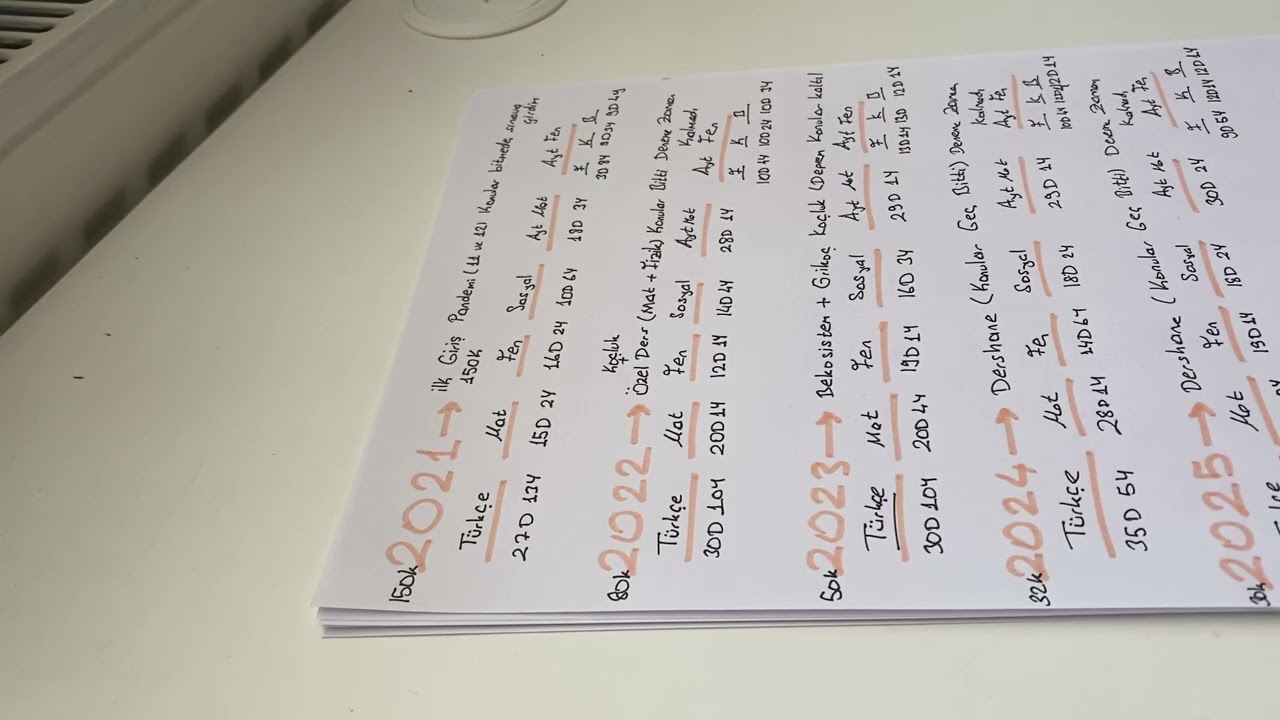 150k 2021 → ilk Giriş Pandemi (11 ve 12) Konular bitmede sınava girdim
150k
Türkçe Mat Fen Sosyal Ayt Mat Ayt Fen
F K B
27D 13Y 15D 2Y 16D 2Y 10D 6Y 18D 3Y 3D 8Y 9D 3Y 9D 4Y
80k 2022 → Koçluk
Özel Ders (Mat + Fizik) Konular Bitti Deneme Zaman Kalmadı
Türkçe Mat Fen Sosyal Ayt Mat Ayt Fen
F K B
30D 10Y 20D 1Y 12D 1Y 14D 4Y 28D 1Y 10D 4Y 10D 2Y 10D 3Y
50k 2023 → Bekosisten + Grikoç Koçluk (Deprem Konular kaltı)
Türkçe Mat Fen Sosyal Ayt Mat Ayt Fen
F K B
30D 10Y 20D 4Y 19D 1Y 16D 3Y 29D 1Y 13D 1Y 13D 12D 1Y
32k 2024 → Dershane (Konular Geç Bitti) Deneme Zaman Kalmadı
Türkçe Mat Fe Sosyal Ayt Mat Ayt Fen
F K B
35D 5Y 28D 1Y 14D 6Y 18D 2Y 29D 1Y 10D 4Y 12D 1Y
30k 2025 → Dershane (Konular Geç Bitti) Deneme Zaman Kalmadı
Mat Fen Sosyal Ayt Mat Ayt Fen
F K B
19D 1Y 18D 2Y 30D 2Y 9D 5Y 12D 1Y